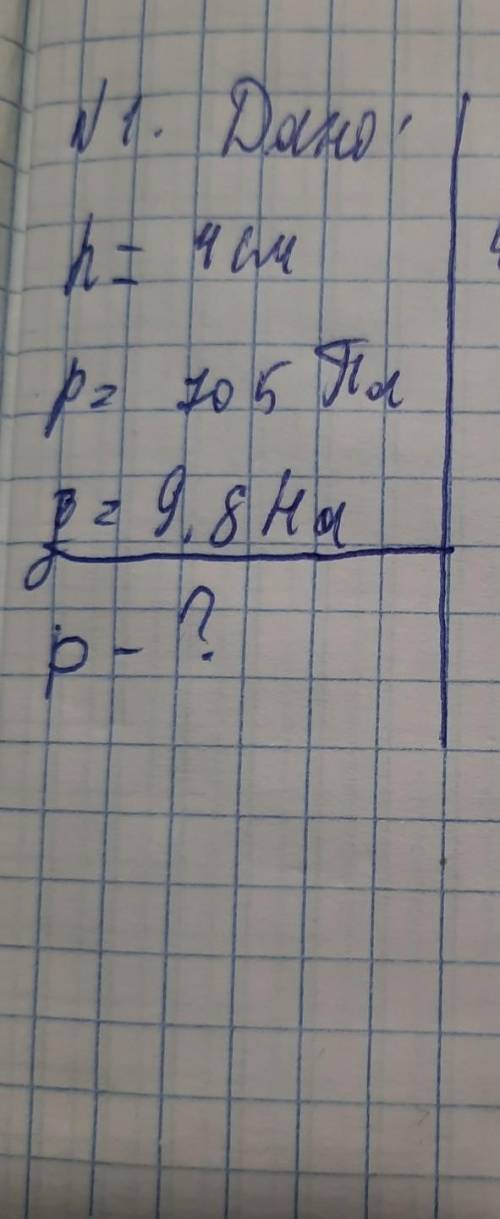 №1. Дано:
h = 4 см
p = 705 Па
g = 9,8 На
ρ - ?